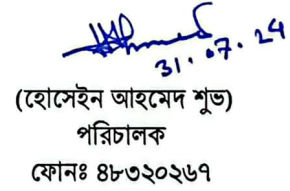 Ahmed
31.07.24
(হোসেইন আহমেদ শুভ)
পরিচালক
ফোনঃ ৪৮৩২০২৬৭